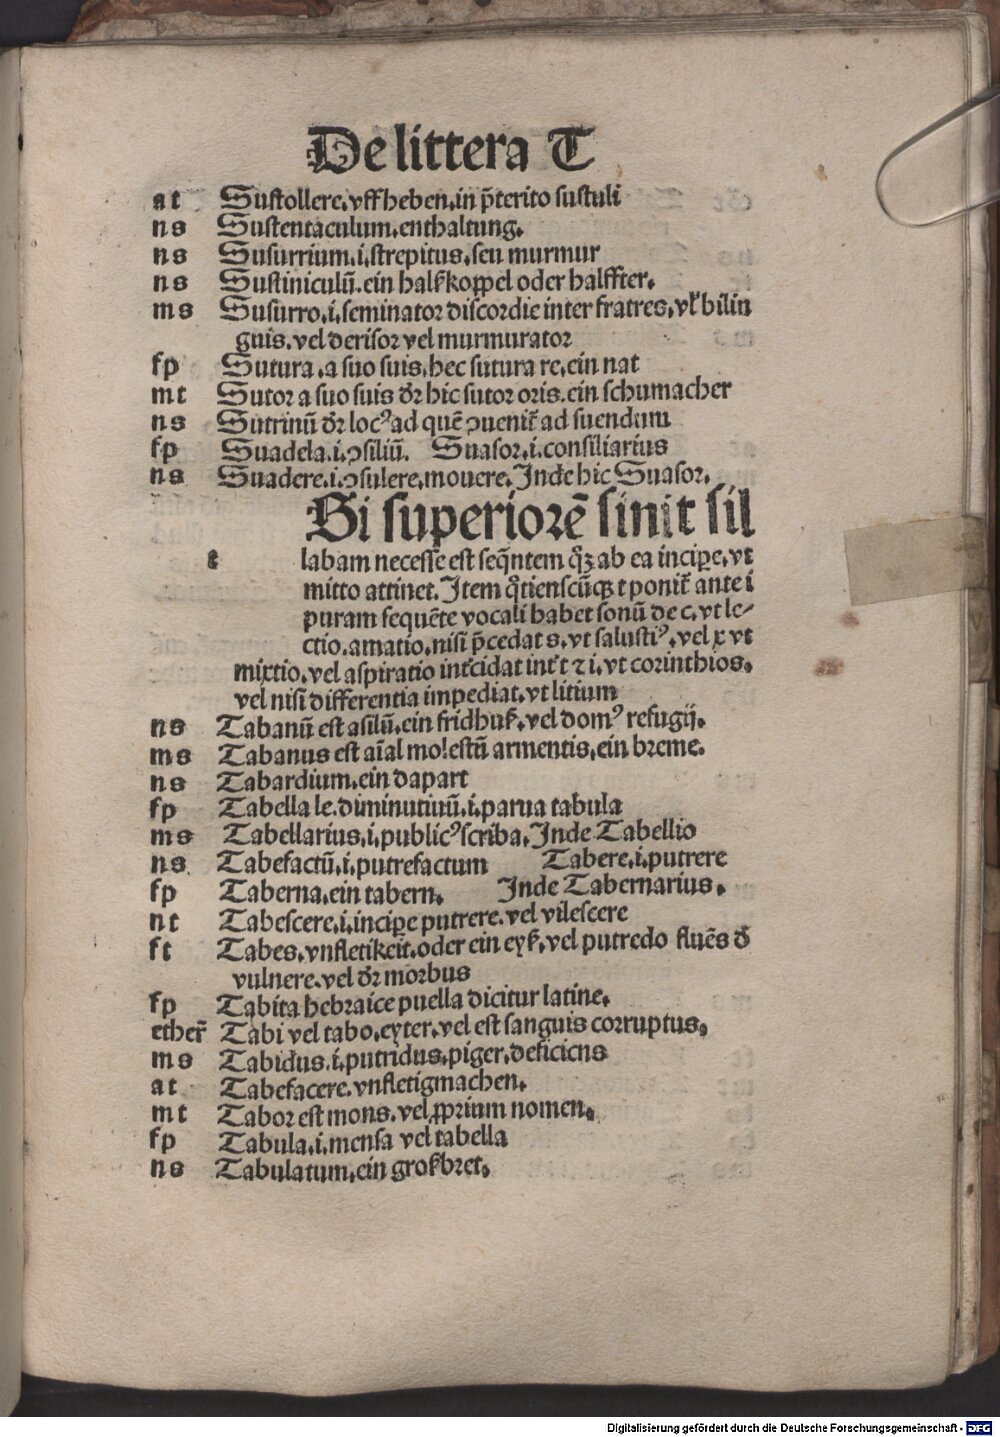 De littera T
at Sustollere.vffheben.in p̄terito sustuli
ns Sustentaculum.enthaltung.
ns Susurrium.i.strepitus.seu murmur
ns Sustiniculū.ein halßkoppel oder halffter.
ms Susurro.i.seminator discordie inter fratres.vl' bilin
guis.vel derisor vel murmurator
fp Sutura.a suo suis.hec sutura re.ein nat
mt Sutor a suo suis dr̄ hic sutor oris.ein schumacher
ns Sutrinū dr̄ locꝰ ad quē ↄuenit̄ ad suendum
fp Suadela.i.ↄsiliū. Suasor.i.consiliarius
ns Suadere.i.ↄsulere.mouere.Inde hic Suasor.
Si superiorē sinit sil
t labam necesse est seq̄ntem qꝫ ab ea incipe.vt
mitto attinet.Item qͦtienscūqꝫ t ponit̄ ante i
puram sequēte vocali habet sonū de c.vt le-
ctio.amatio.nisi p̄cedat s.vt salustiꝰ.vel x vt
mixtio.vel aspiratio int̄cidat int̄ t ⁊ i.vt corinthios.
vel nisi differentia impediat.vt litium
ns Tabanū est asilū.ein fridhuß.vel domꝰ refugij.
ms Tabanus est aīal molestū armentis.ein breme.
ns Tabardium.ein dapart
fp Tabella le.diminutiuū.i.parua tabula
ms Tabellarius.i.publicꝰ scriba.Inde Tabellio
ns Tabefactū.i.putrefactum Tabere.i.putrere
fp Taberna.ein tabern. Inde Tabernarius.
nt Tabescere.i.incipe putrere.vel vilescere
ft Tabes.vnfletikeit.oder ein eyß.vel putredo fluēs đ
vulnere.vel dr̄ morbus
fp Tabita hebraice puella dicitur latine.
ether̄ Tabi vel tabo.eyter.vel est sanguis corruptus.
ms Tabidus.i.putridus.piger.deficiens
at Tabefacere.vnfletigmachen.
mt Tabor est mons.vel ꝓprium nomen.
fp Tabula.i.mensa vel tabella
ns Tabulatum.ein großbret.
Digitalisierung gefördert durch die Deutsche Forschungsgemeinschaft - DFG